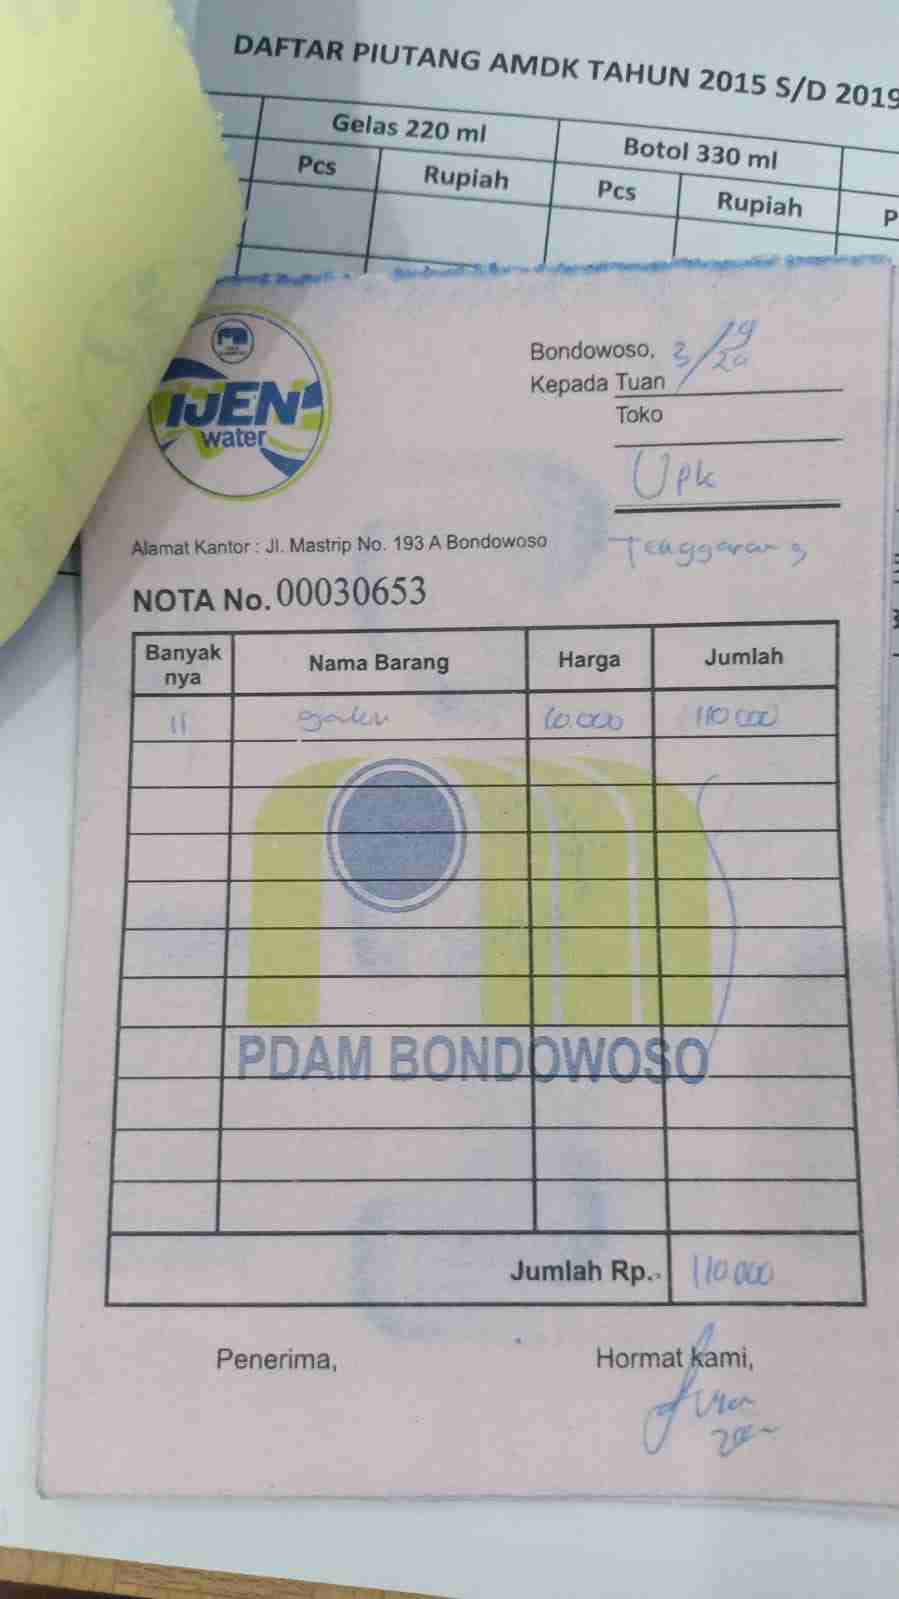 DAFTAR PIUTANG AMDK TAHUN 2015 S/D 2019
Gelas 220 ml
Botol 330 ml
Pcs
Rupiah
Pcs
Rupiah
P
IJEN
water
Bondowoso,
Kepada Tuan
Toko
Upk
Tenggarang
Alamat Kantor : Jl. Mastrip No. 193 A Bondowoso
NOTA No. 00030653
Banyak nya Nama Barang Harga Jumlah
11 galon 10.000 110.000
PDAM BONDOWOSO
Jumlah Rp. 110.000
Penerima,
Hormat kami,